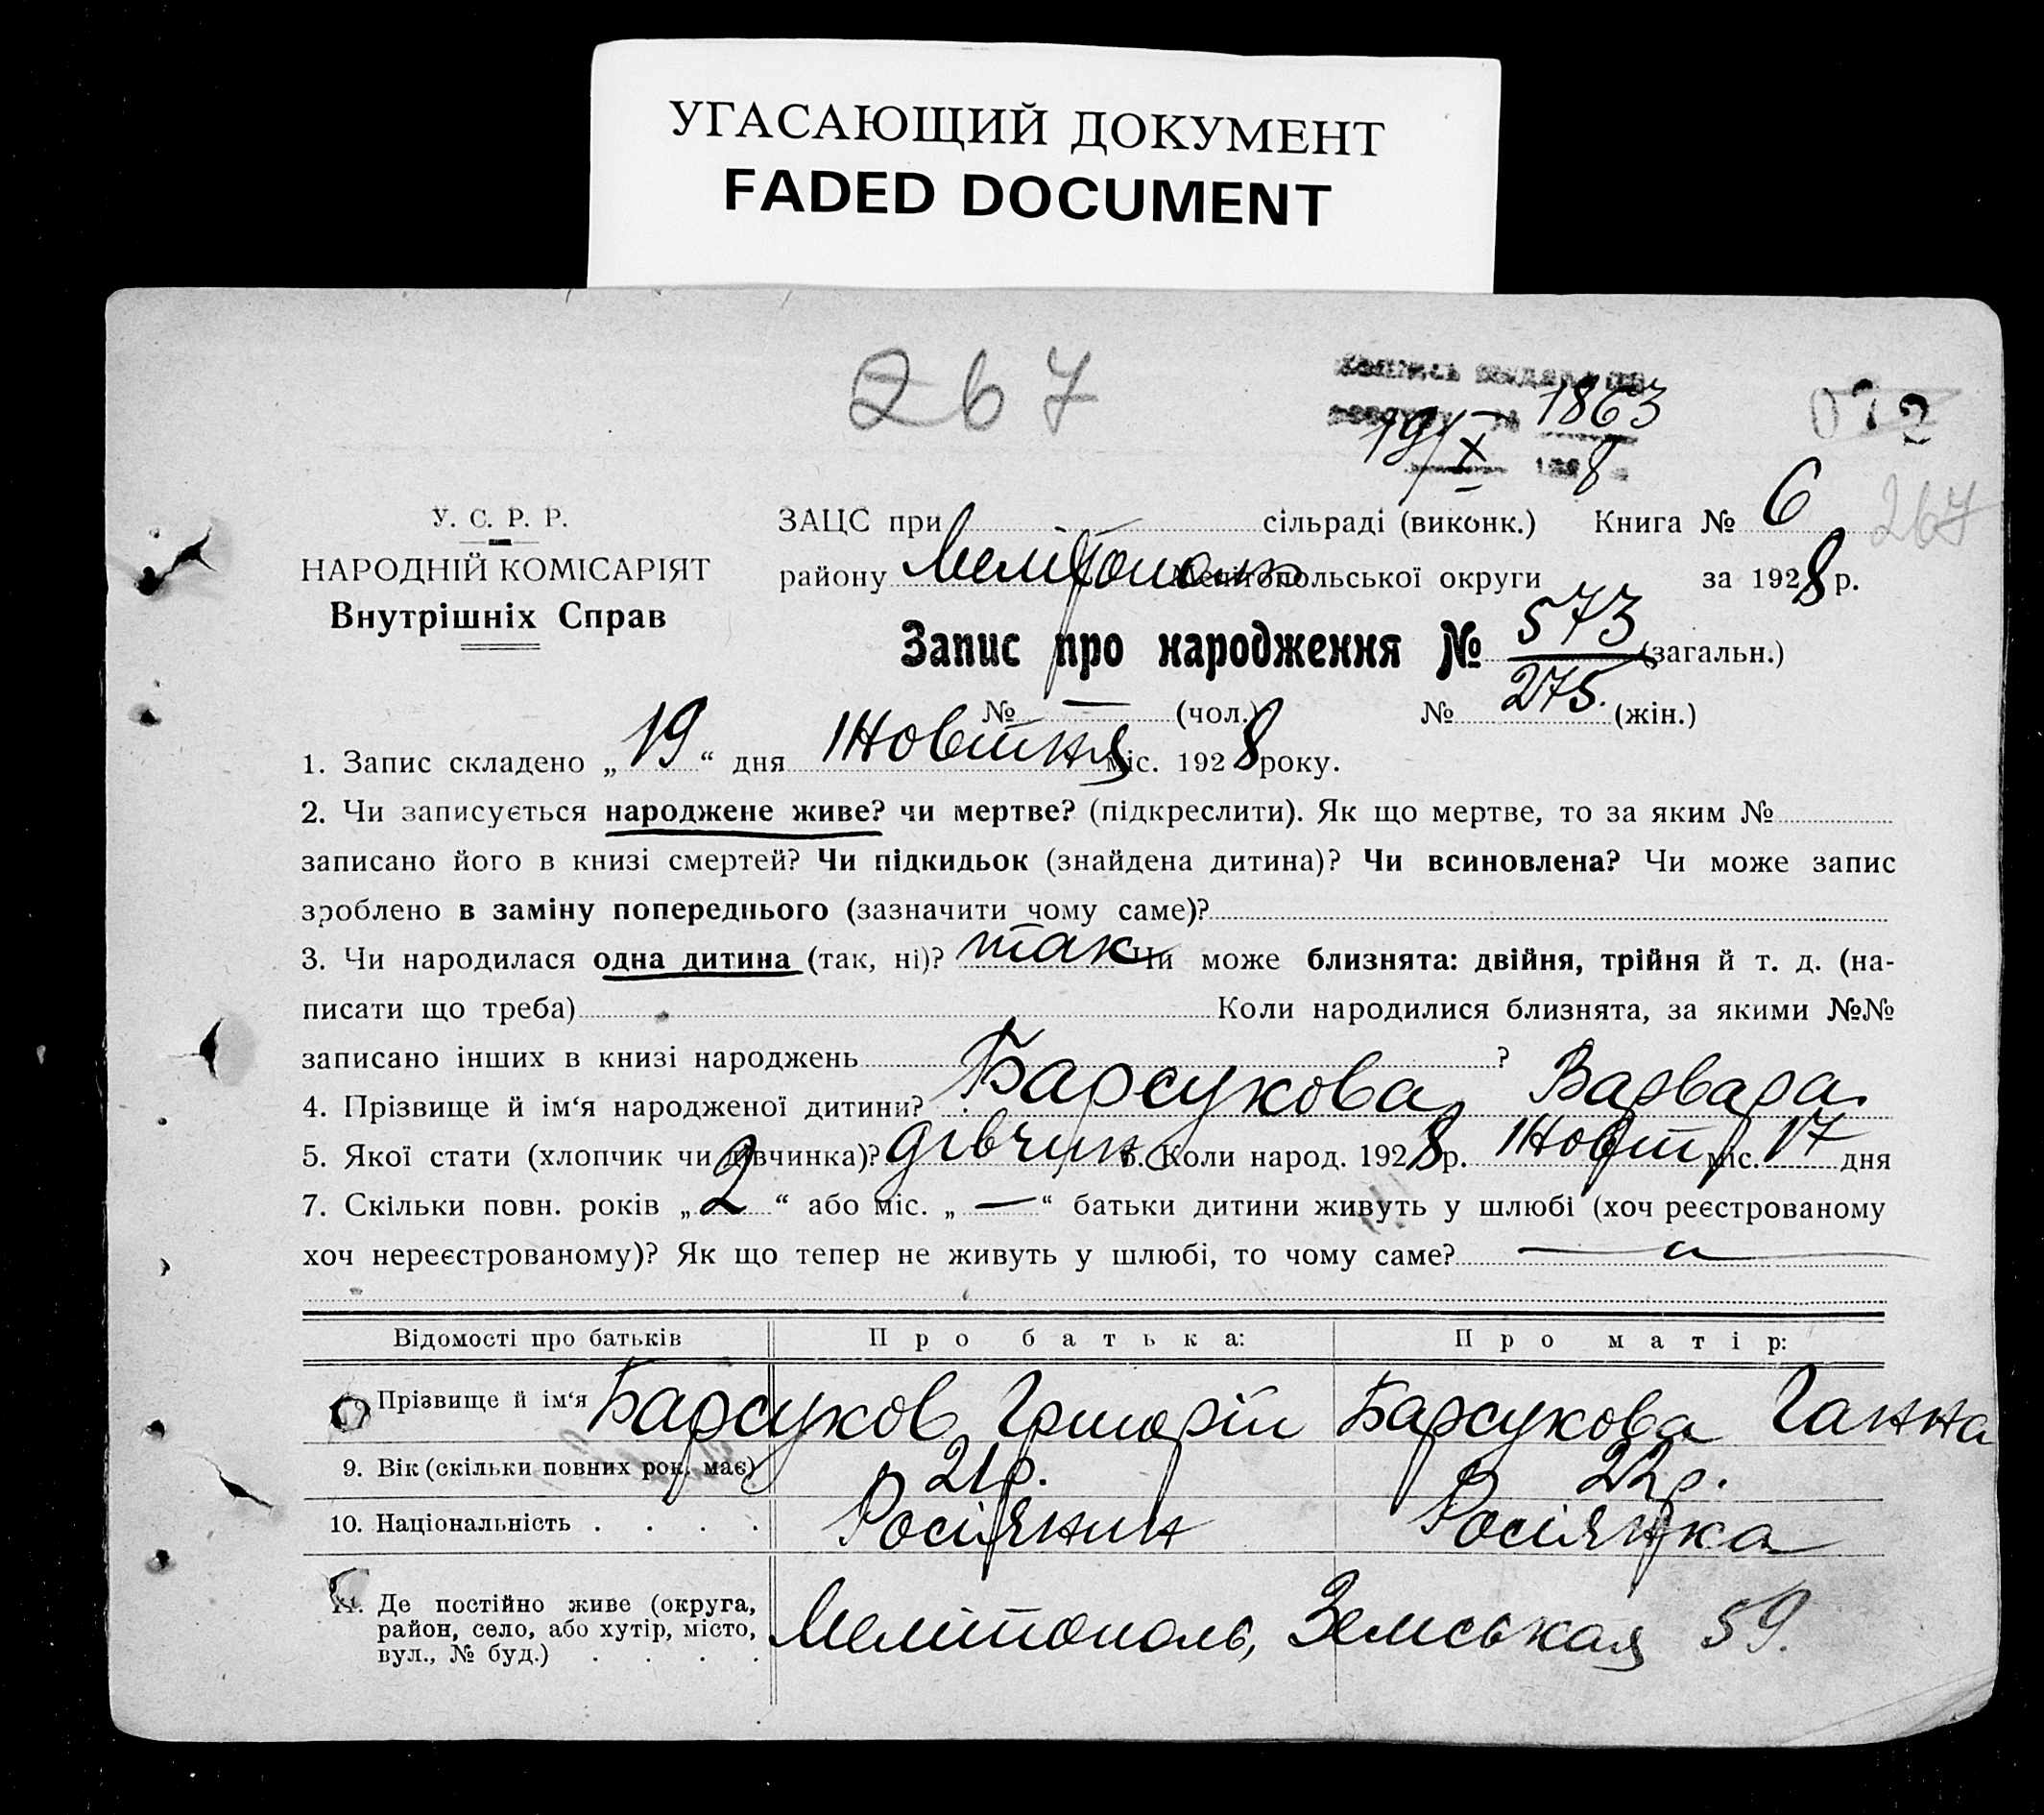 УГАСАЮЩИЙ ДОКУМЕНТ
FADED DOCUMENT
267
1863
19/X 8
072
267
У. С. Р. Р.
НАРОДНІЙ КОМІСАРІЯТ
Внутрішніх Справ
ЗАЦС при сільраді (виконк.) Книга № 6
району Мелітополь Мелітопольської округи за 1928 р.
Запис про народження № 573 (загальн.)
№ — (чол.) № 275. (жін.)
1. Запис складено „19“ дня Жовтня міс. 1928 року.
2. Чи записується народжене живе? чи мертве? (підкреслити). Як що мертве, то за яким №
записано його в книзі смертей? Чи підкидьок (знайдена дитина)? Чи всиновлена? Чи може запис
зроблено в заміну попереднього (зазначити чому саме)?
3. Чи народилася одна дитина (так, ні)? так Чи може близнята: двійня, трійня й т. д. (на-
писати що треба) Коли народилися близнята, за якими №№
записано інших в книзі народжень ?
4. Прізвище й ім‘я народженої дитини? Барсукова Варвара.
5. Якої стати (хлопчик чи дівчинка)? дівчинк 6. Коли народ. 1928 р. Жовт міс. 17 дня
7. Скільки повн. років „2“ або міс. „—“ батьки дитини живуть у шлюбі (хоч реєстрованому
хоч нереєстрованому)? Як що тепер не живуть у шлюбі, то чому саме?
Відомості про батьків Про батька: Про матір:
Прізвище й ім‘я Барсуков Григорій Барсукова Ганна
9. Вік (скільки повних рок. має) 21 р. 22 р.
10. Національність . . . . Росіянин Росіянка
11. Де постійно живе (округа,
район, село, або хутір, місто,
вул., № буд.) . . . . Мелітополь, Земськая 59.